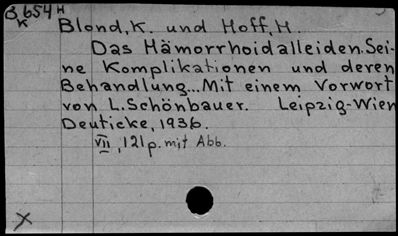 8654 H
K
Blond, K. und Hoff, H.
Das Hämorrhoidalleiden. Sei-
ne Komplikationen und deren
Behandlung... Mit einem Vorwort
von L. Schönbauer. Leipzig-Wien
Deuticke, 1936.
VII, 121 p. mit Abb.
X